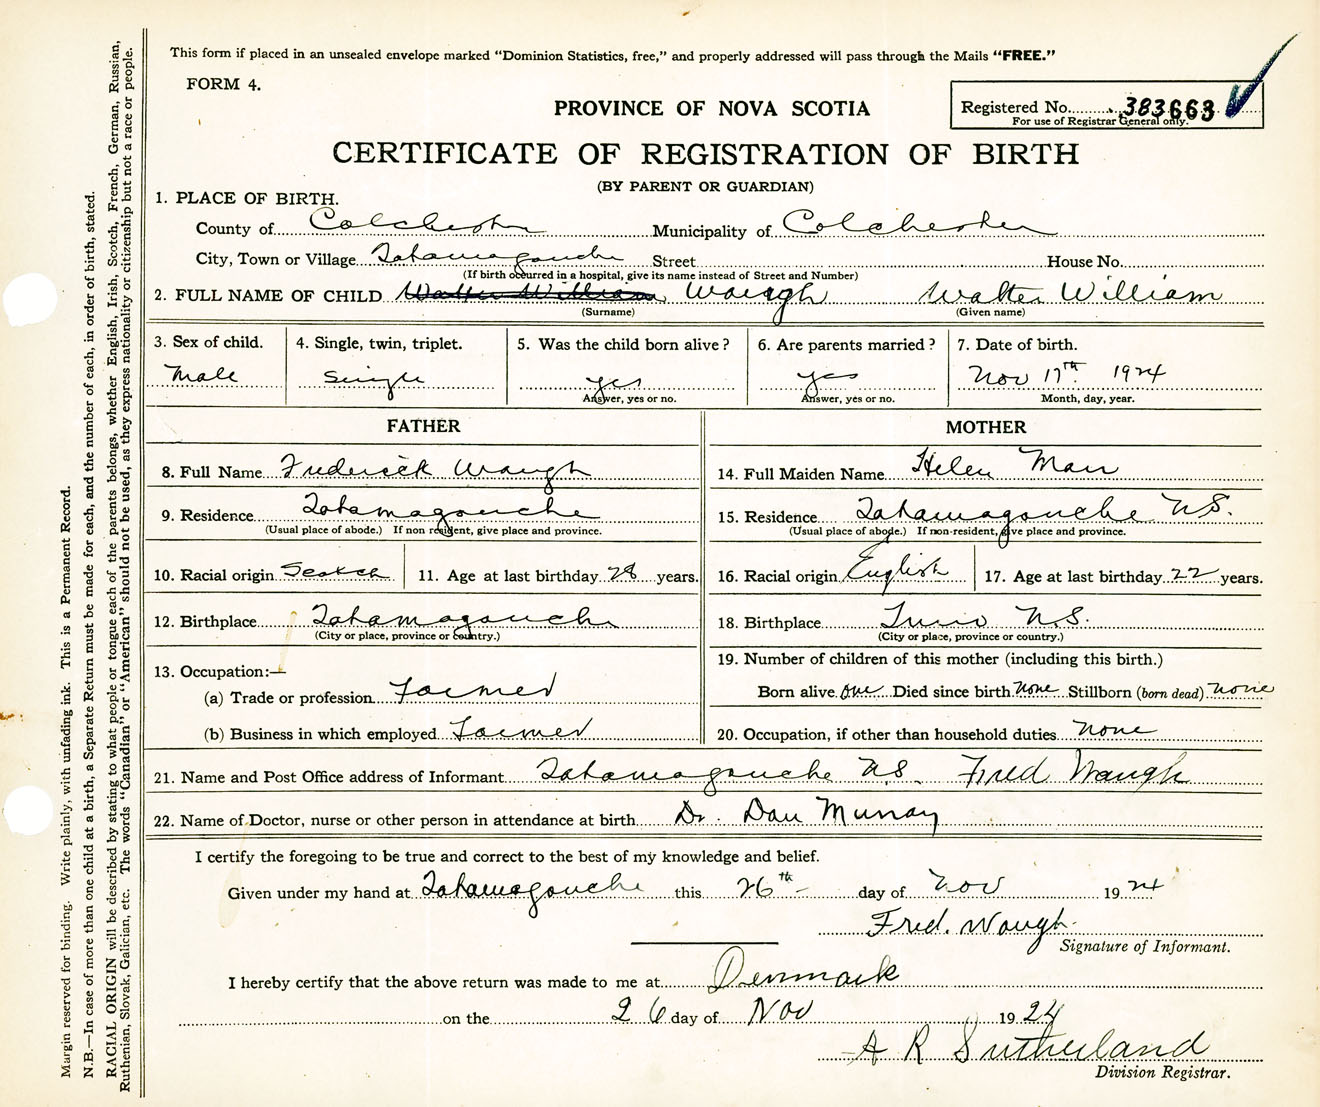 This form if placed in an unsealed envelope marked "Dominion Statistics, free," and properly addressed will pass through the Mails "FREE."
FORM 4.
PROVINCE OF NOVA SCOTIA
Registered No. 383663
For use of Registrar General only.
CERTIFICATE OF REGISTRATION OF BIRTH
(BY PARENT OR GUARDIAN)
1. PLACE OF BIRTH.
County of Colchester Municipality of Colchester
City, Town or Village Tatamagouche Street House No.
(If birth occurred in a hospital, give its name instead of Street and Number)
2. FULL NAME OF CHILD Walter William Waugh Walter William
(Surname) (Given name)
3. Sex of child. 4. Single, twin, triplet. 5. Was the child born alive? 6. Are parents married? 7. Date of birth.
Male Single yes yes Nov 17th 1924
Answer, yes or no. Answer, yes or no. Month, day, year.
FATHER MOTHER
8. Full Name Frederick Waugh 14. Full Maiden Name Helen Marr
9. Residence Tatamagouche 15. Residence Tatamagouche N.S.
(Usual place of abode.) If non resident, give place and province. (Usual place of abode.) If non-resident, give place and province.
10. Racial origin Scotch 11. Age at last birthday 28 years. 16. Racial origin English 17. Age at last birthday 22 years.
12. Birthplace Tatamagouche 18. Birthplace Truro N.S.
(City or place, province or country.) (City or place, province or country.)
13. Occupation:— 19. Number of children of this mother (including this birth.)
(a) Trade or profession Farmer Born alive one Died since birth none Stillborn (born dead) none
(b) Business in which employed Farmer 20. Occupation, if other than household duties none
21. Name and Post Office address of Informant Tatamagouche N.S. Fred Waugh
22. Name of Doctor, nurse or other person in attendance at birth Dr. Dan Murray
I certify the foregoing to be true and correct to the best of my knowledge and belief.
Given under my hand at Tatamagouche this 26th day of Nov 1924
Fred. Waugh
Signature of Informant.
I hereby certify that the above return was made to me at Denmark
on the 26 day of Nov 1924
A R Sutherland
Division Registrar.
Margin reserved for binding. Write plainly, with unfading ink. This is a Permanent Record.
N.B.—In case of more than one child at a birth, a Separate Return must be made for each, and the number of each, in order of birth, stated.
RACIAL ORIGIN will be described by stating to what people or tongue each of the parents belongs, whether English, Irish, Scotch, French, German, Russian,
Ruthenian, Slovak, Galician, etc. The words "Canadian" or "American" should not be used, as they express nationality or citizenship but not a race or people.